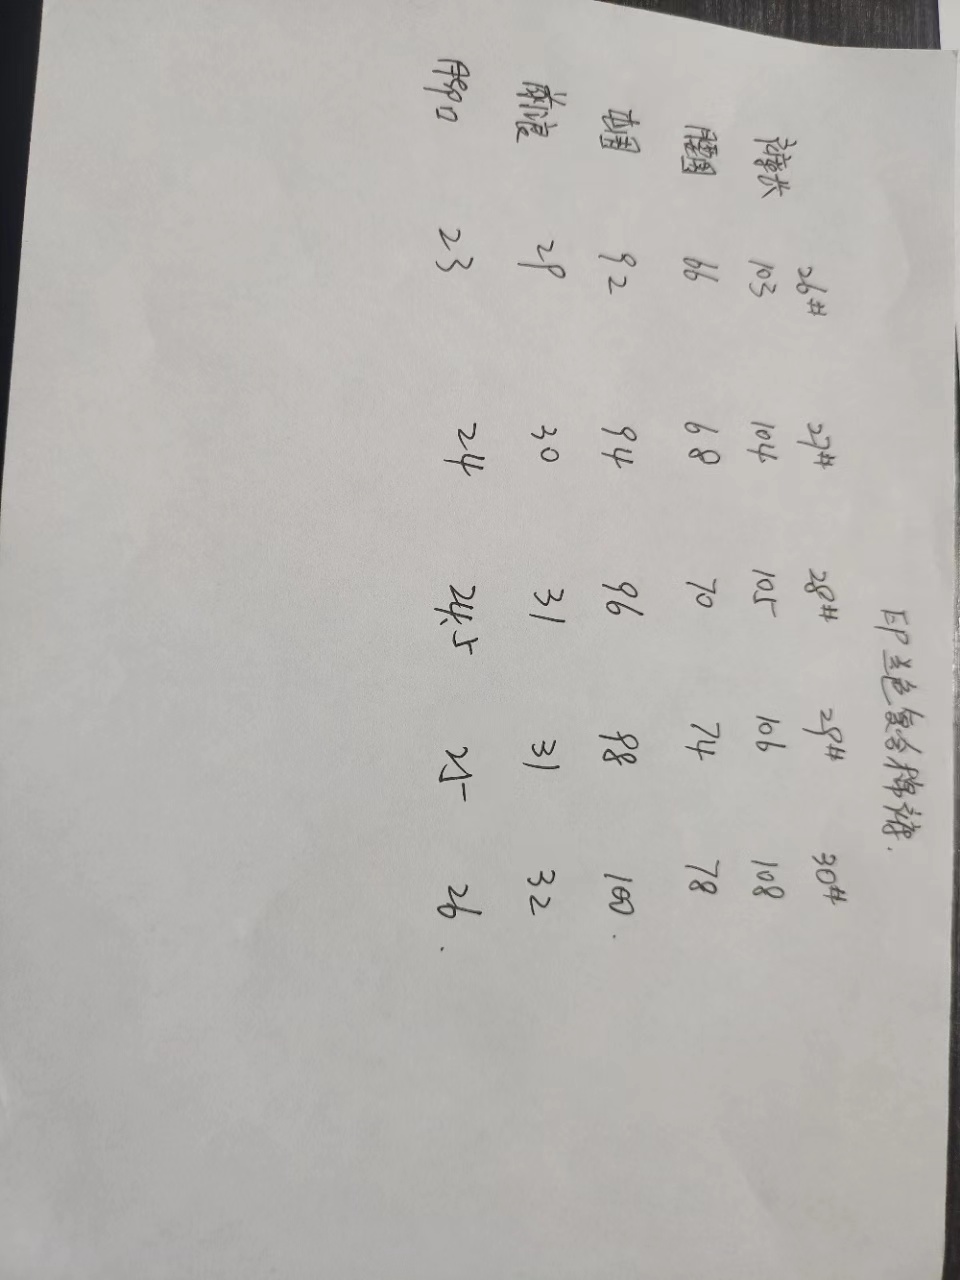 EP兰色复合棉裤.
26# 27# 28# 29# 30#
裤长 103 104 105 106 108
腰围 66 68 70 74 78
围 92 94 96 98 100.
前浪 29 30 31 31 32
脚口 23 24 24.5 25 26.